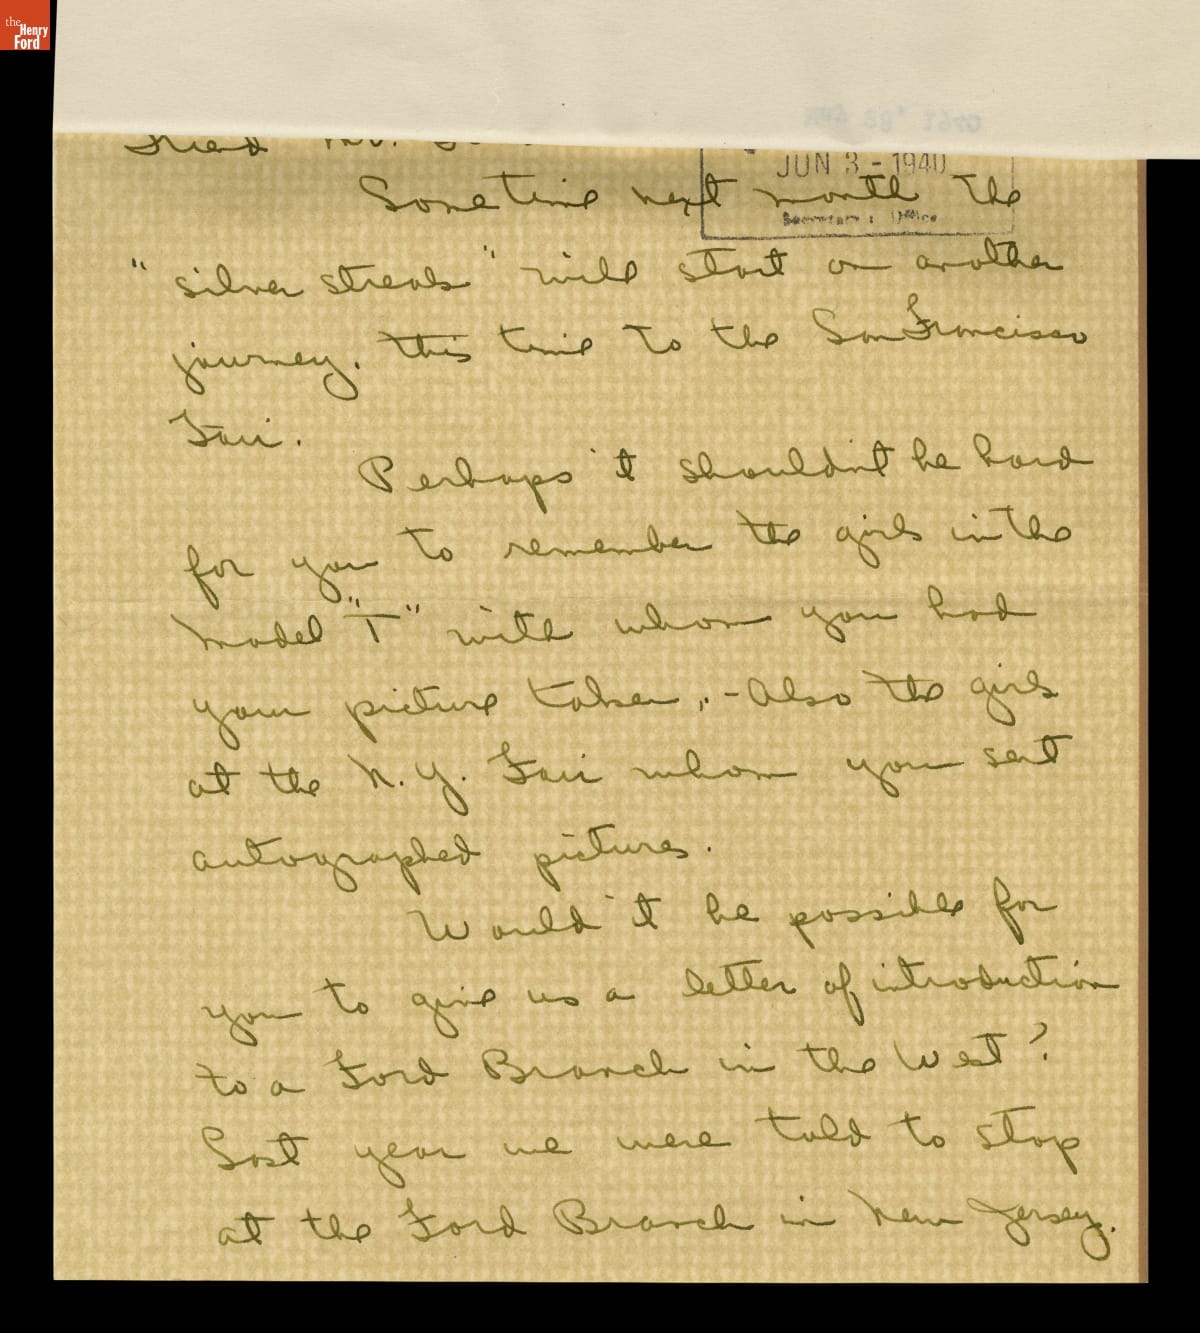 the
Henry
Ford
JUN 3 - 1940
Secretary's Office
Sometime next month the
"silver streak" will start on another
journey. this time to the San Francisco
Fair.
Perhaps it shouldn't be hard
for you to remember the girls in the
model "T" with whom you had
your picture taken, - Also the girls
at the N. Y. Fair whom you sent
autographed pictures.
Would it be possible for
you to give us a letter of introduction
to a Ford Branch in the West?
Last year we were told to stop
at the Ford Branch in New Jersey.